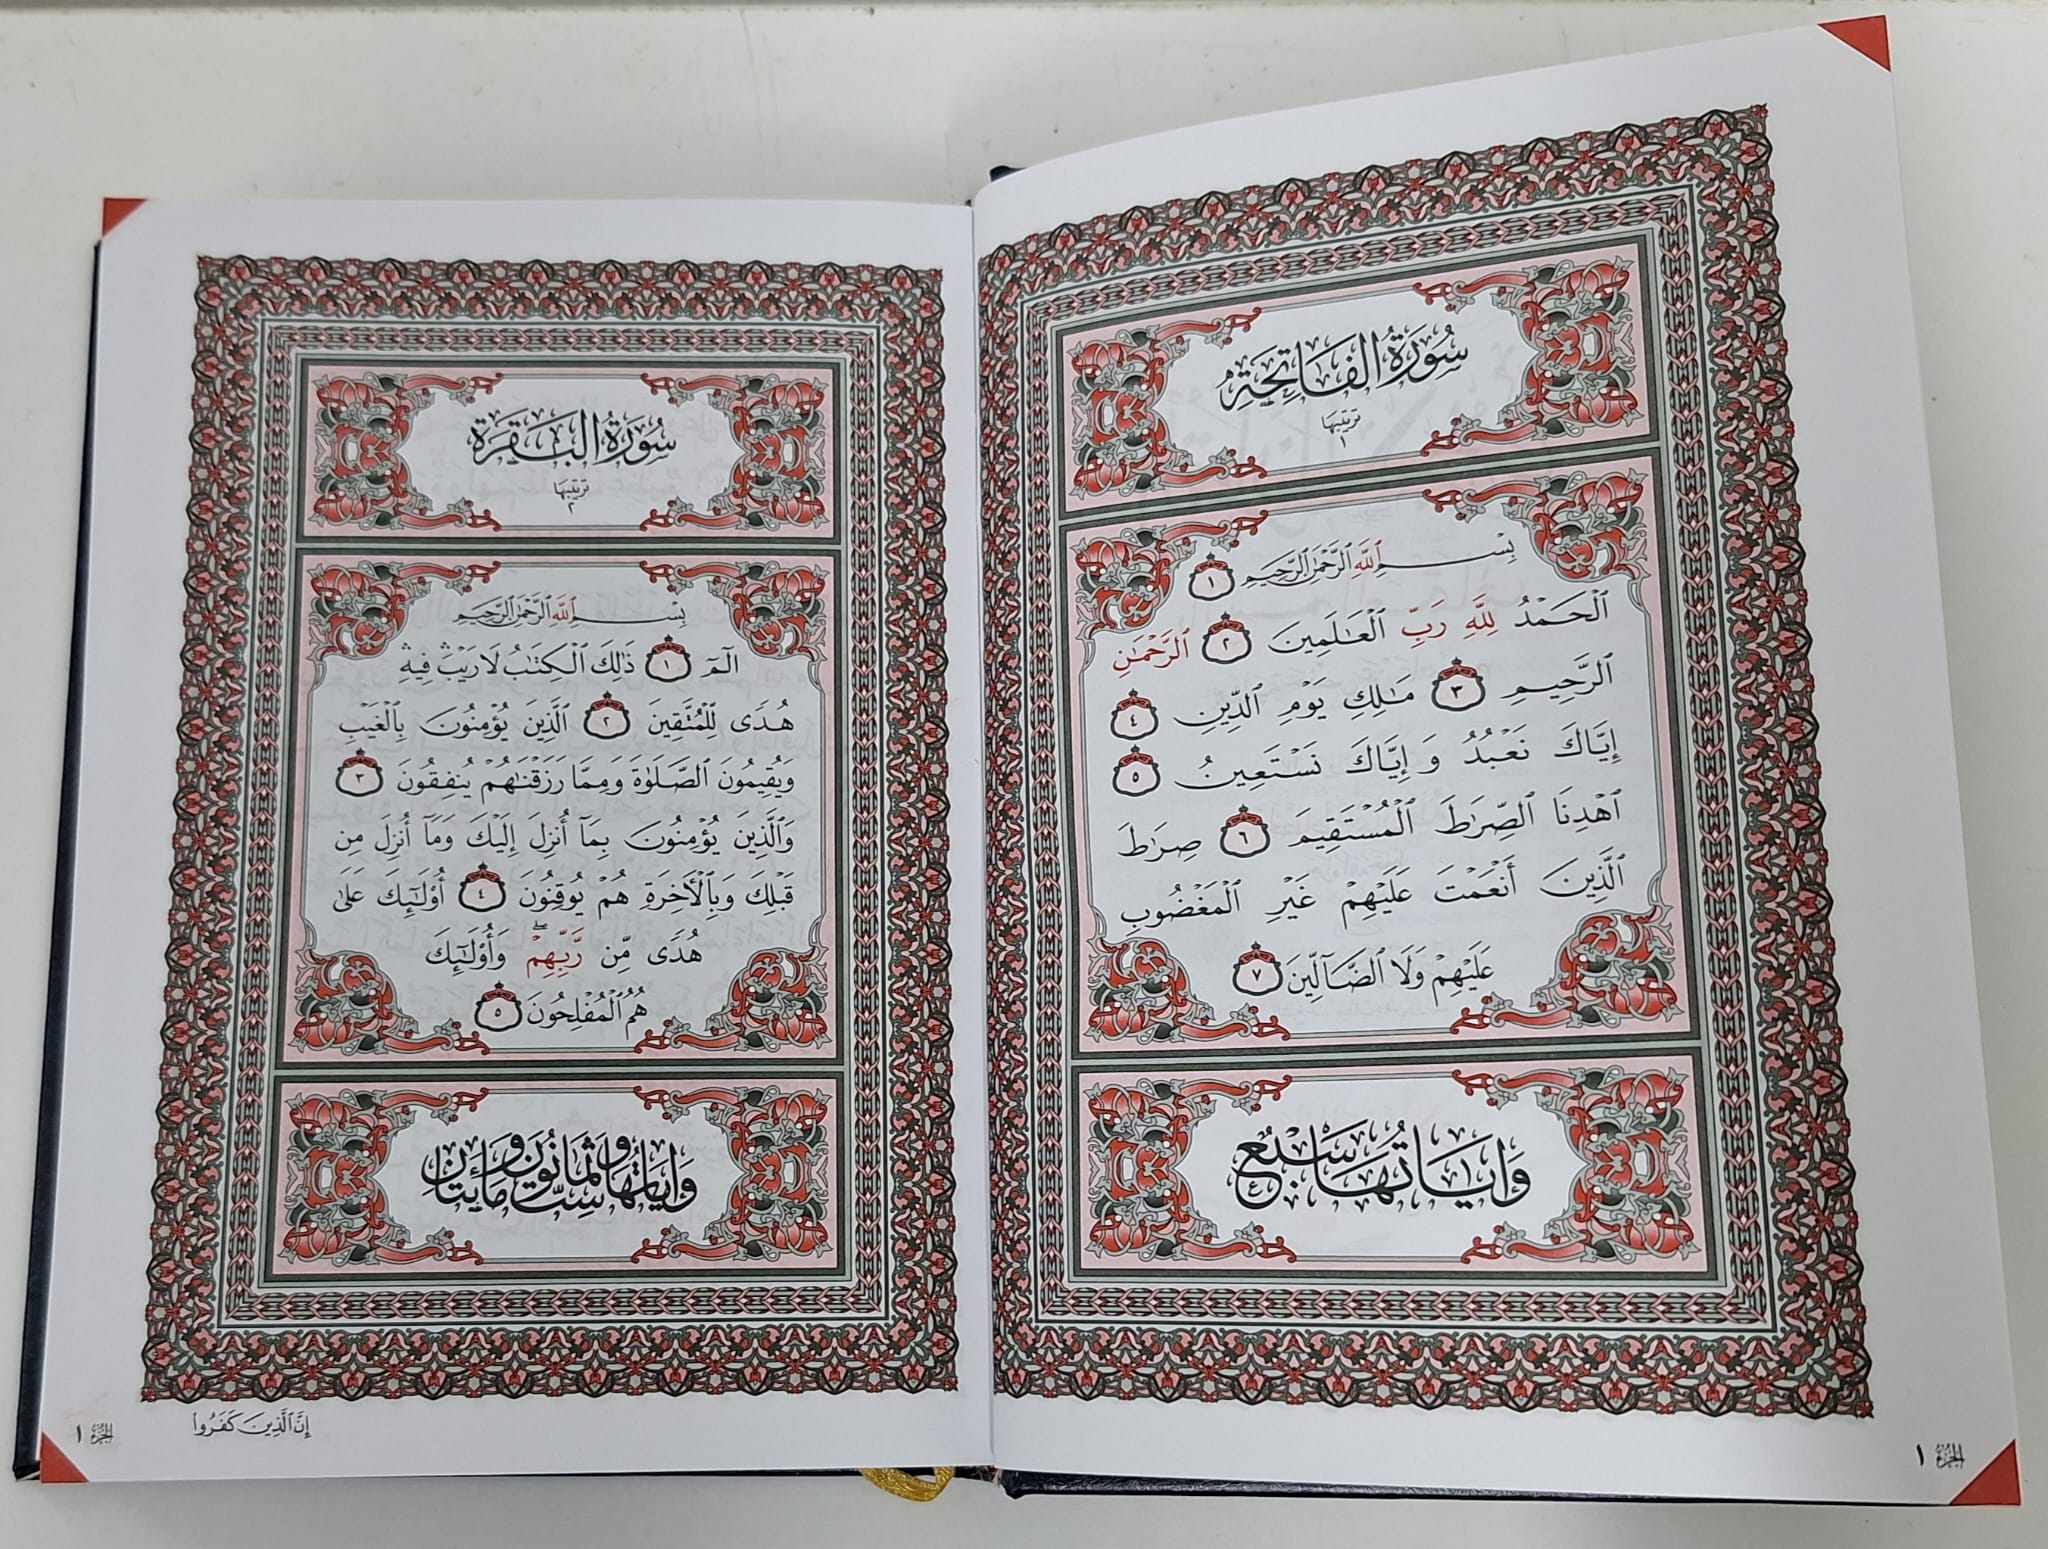 سُورَةُ الْفَاتِحَةِ
ترتيبها
١
بِسْمِ ٱللَّهِ ٱلرَّحْمَٰنِ ٱلرَّحِيمِ ١
ٱلْحَمْدُ لِلَّهِ رَبِّ ٱلْعَٰلَمِينَ ٢ ٱلرَّحْمَٰنِ
ٱلرَّحِيمِ ٣ مَٰلِكِ يَوْمِ ٱلدِّينِ ٤
إِيَّاكَ نَعْبُدُ وَإِيَّاكَ نَسْتَعِينُ ٥
ٱهْدِنَا ٱلصِّرَٰطَ ٱلْمُسْتَقِيمَ ٦ صِرَٰطَ
ٱلَّذِينَ أَنْعَمْتَ عَلَيْهِمْ غَيْرِ ٱلْمَغْضُوبِ
عَلَيْهِمْ وَلَا ٱلضَّآلِّينَ ٧
وَاٰيَاتُهَا سَبْعٌ
الجزء ١
سُورَةُ الْبَقَرَةِ
ترتيبها
٢
بِسْمِ ٱللَّهِ ٱلرَّحْمَٰنِ ٱلرَّحِيمِ
الٓمٓ ١ ذَٰلِكَ ٱلْكِتَٰبُ لَا رَيْبَ ۛ فِيهِ ۛ
هُدًى لِّلْمُتَّقِينَ ٢ ٱلَّذِينَ يُؤْمِنُونَ بِٱلْغَيْبِ
وَيُقِيمُونَ ٱلصَّلَوٰةَ وَمِمَّا رَزَقْنَٰهُمْ يُنفِقُونَ ٣
وَٱلَّذِينَ يُؤْمِنُونَ بِمَآ أُنزِلَ إِلَيْكَ وَمَآ أُنزِلَ مِن
قَبْلِكَ وَبِٱلْأَخِرَةِ هُمْ يُوقِنُونَ ٤ أُوْلَٰٓئِكَ عَلَىٰ
هُدًى مِّن رَّبِّهِمْ ۖ وَأُوْلَٰٓئِكَ
هُمُ ٱلْمُفْلِحُونَ ٥
وَاٰيَاتُهَا سِتٌّ وَثَمَانُونَ وَمِائَتَانِ
إِنَّ ٱلَّذِينَ كَفَرُوا
الجزء ١